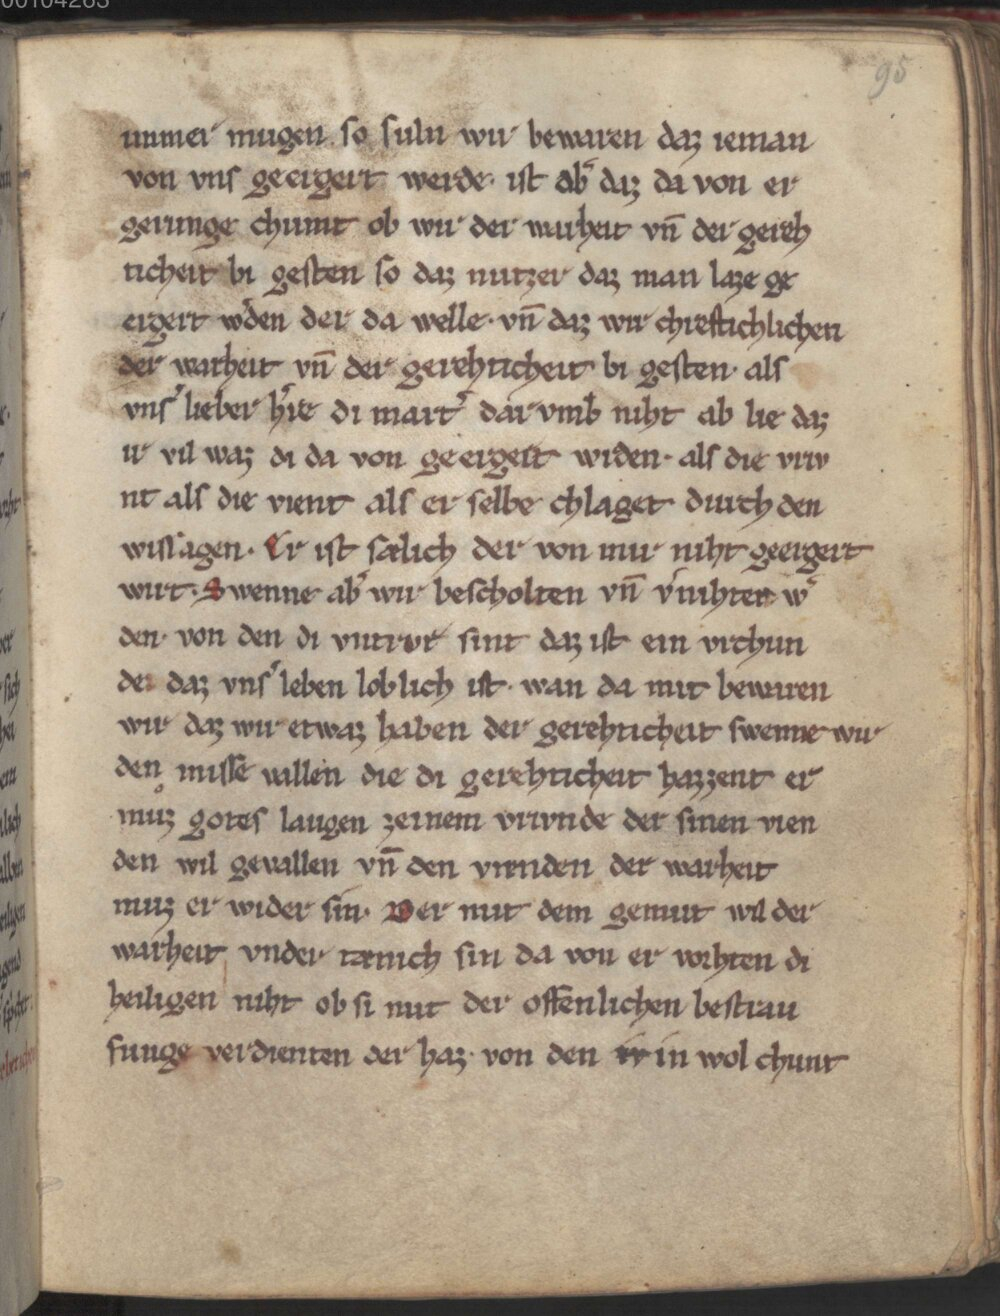 95
immer mugen. so suln wir bewaren daz ieman
von vns geergert werde· ist ab̾ daz da von er
gerunge chumt ob wir der warheit vn̄ der gereh
ticheit bi gesten so daz nutzer daz man laze ge
ergert w̾den der da welle· vn̄ daz wir chreftichlichen
der warheit vn̄ der gerehticheit bi gesten· als
vns̾ lieber h̾re di mart̾ dar vmb niht ab lie daz
ir vil waz di da von geergert wrden· als die vriv
nt als die vient als er selbe chlaget durch den
wissagen· Er ist sælich der von mir niht geergert
wirt· Swenne ab̾ wir bescholten vn̄ v̾nihtet w̾
den· von den di vntriwe sint daz ist ein vrchun
de daz vns̾ leben loblich ist· wan da mit bewaren
wir daz wir etwaz haben der gerehticheit swenne wir
den misse vallen die di gerehticheit hazzent er
muͦz gotes laugen zeinem vrivnde der sinen vien
den wil gevallen vn̄ den vrienden der warheit
muz er wider sin· Der mit dem gemut wil der
warheit vnder tænich sin da von er vorhten di
heiligen niht ob si mit der offenlichen bestrau
funge verdienten der haz· von den in wol chunt